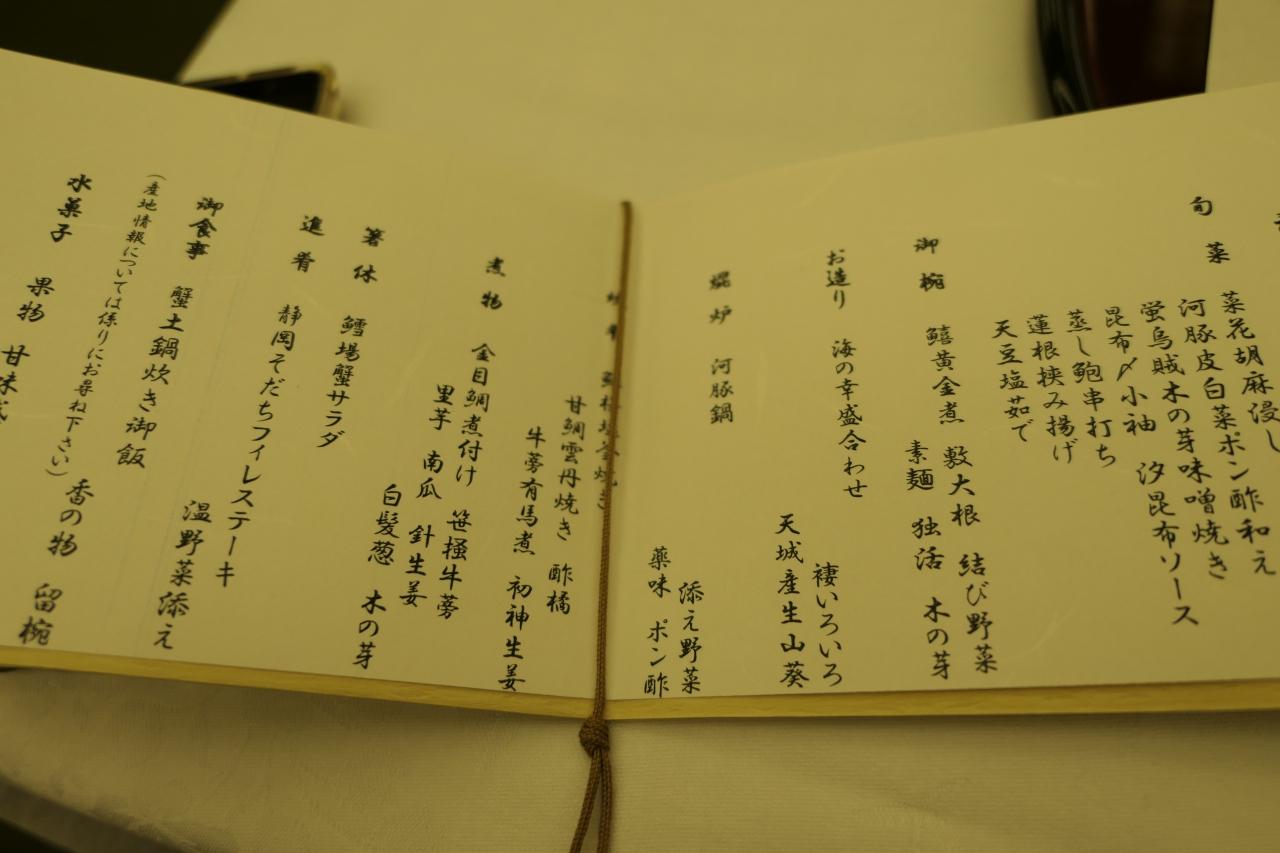 旬菜 菜花胡麻浸し
河豚皮白菜ポン酢和え
蛍烏賊木の芽味噌焼き
昆布〆小袖 汐昆布ソース
蒸し鮑串打ち
蓮根挟み揚げ
天豆塩茹で
御椀 鱚黄金煮 敷大根 結び野菜
素麺 独活 木の芽
お造り 海の幸盛合わせ 褄いろいろ
天城産生山葵
焜炉 河豚鍋 添え野菜
薬味 ポン酢
甘鯛雲丹焼き 酢橘
牛蒡有馬煮 初神生姜
煮物 金目鯛煮付け 笹掻牛蒡
里芋 南瓜 針生姜
白髪葱 木の芽
箸休 鱈場蟹サラダ
進肴 静岡そだちフィレステーキ
温野菜添え
御食事 蟹土鍋炊き御飯
(産地情報については係りにお尋ね下さい) 香の物 留椀
水菓子 果物 甘味